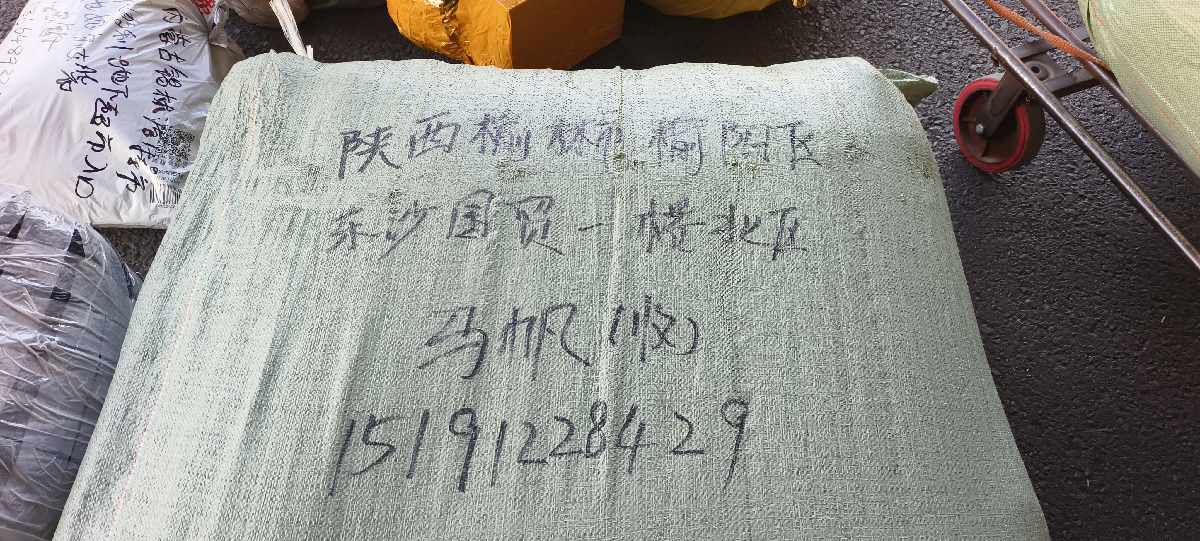 陕西榆林榆阳区
东沙国贸一楼北区
马帆(收)
15191228429